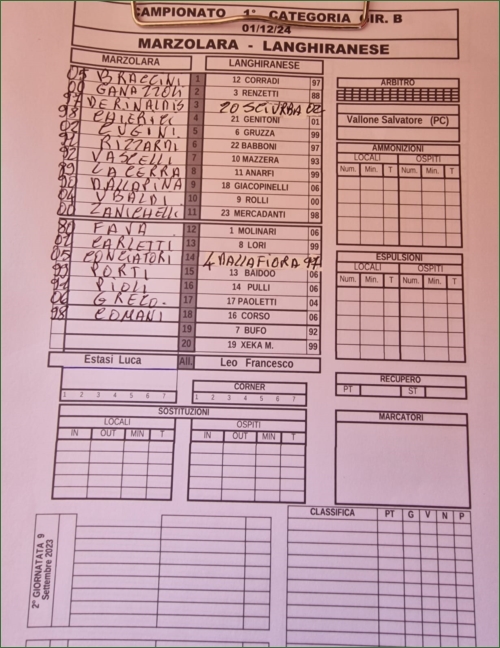 CAMPIONATO 1° CATEGORIA GIR. B
01/12/24
MARZOLARA - LANGHIRANESE
MARZOLARA LANGHIRANESE
05 BRACCINI 1 12 CORRADI 97
00 GANAZZOLI 2 3 RENZETTI 88
97 DE RINALDIS 3 20 SCIURBA 02
98 CHIERICI 4 21 GENITONI 01
EUGINI 5 6 GRUZZA 99
RIZZARDI 6 22 BABBONI 97
92 VASCELLI 7 10 MAZZERA 93
89 LA CERRA 8 11 ANARFI 99
DALLAPINA 9 18 GIACOPINELLI 06
04 UBALDI 10 9 ROLLI 00
00 ZANICHELLI 11 23 MERCADANTI 98
80 FAVA 12 1 MOLINARI 06
02 CARLETTI 13 8 LORI 99
05 CONCIATORI 14 4 DALLAFIORA 97
99 PORTI 15 13 BAIDOO 06
PIOLI 16 14 PULLI 06
06 GRECO 17 17 PAOLETTI 04
98 COMANI 18 16 CORSO 06
19 7 BUFO 92
20 19 XEKA M. 99
Estasi Luca All. Leo Francesco
ARBITRO
Vallone Salvatore (PC)
AMMONIZIONI
LOCALI OSPITI
Num. Min. T Num. Min. T
ESPULSIONI
LOCALI OSPITI
Num. Min. T Num. Min. T
RECUPERO
PT ST
MARCATORI
CORNER
1 2 3 4 5 6 7 1 2 3 4 5 6 7
SOSTITUZIONI
LOCALI OSPITI
IN OUT MIN T IN OUT MIN T
2° GIORNATATA 9
Settembre 2023
CLASSIFICA PT G V N P